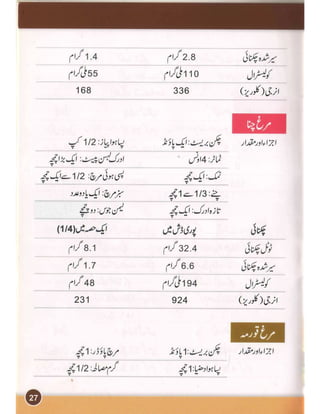 سیر شدہ چکنائی 2.8 گرام 1.4 گرام
کولیسٹرال 110 ملی گرام 55 ملی گرام
انرجی (کلوریز) 336 168
مرغ چنا
اجزاء اور مقدار چکن بریسٹ: ایک پاؤنڈ پسا ہوا پیاز: 1/2 کپ
ٹماٹر: 4 اونس ادرک لہسن پیسٹ: ایک بڑا چمچہ
نمک: ایک چمچہ پسی ہوئی مرچ: 1/2 سے ایک چمچہ
چنے: 1/3 سے 1 چمچہ سبز مرچ: ایک یا دو عدد
تازہ ادرک: ایک چمچہ لیمن جوس: دو چمچے
چکنائی پوری ڈش میں ایک حصہ میں (1/4)
ٹوٹل چکنائی 32.4 گرام 8.1 گرام
سیر شدہ چکنائی 6.6 گرام 1.7 گرام
کولیسٹرال 194 ملی گرام 48 گرام
انرجی (کلوریز) 924 231
مرغ قورمہ
اجزاء اور مقدار چکن بریسٹ: 1 پاؤنڈ مرچ پاؤڈر: 1 چمچہ
پسا ہوا دھنیا: 1 چمچہ گرم مصالحہ: 1/2 چمچہ
27